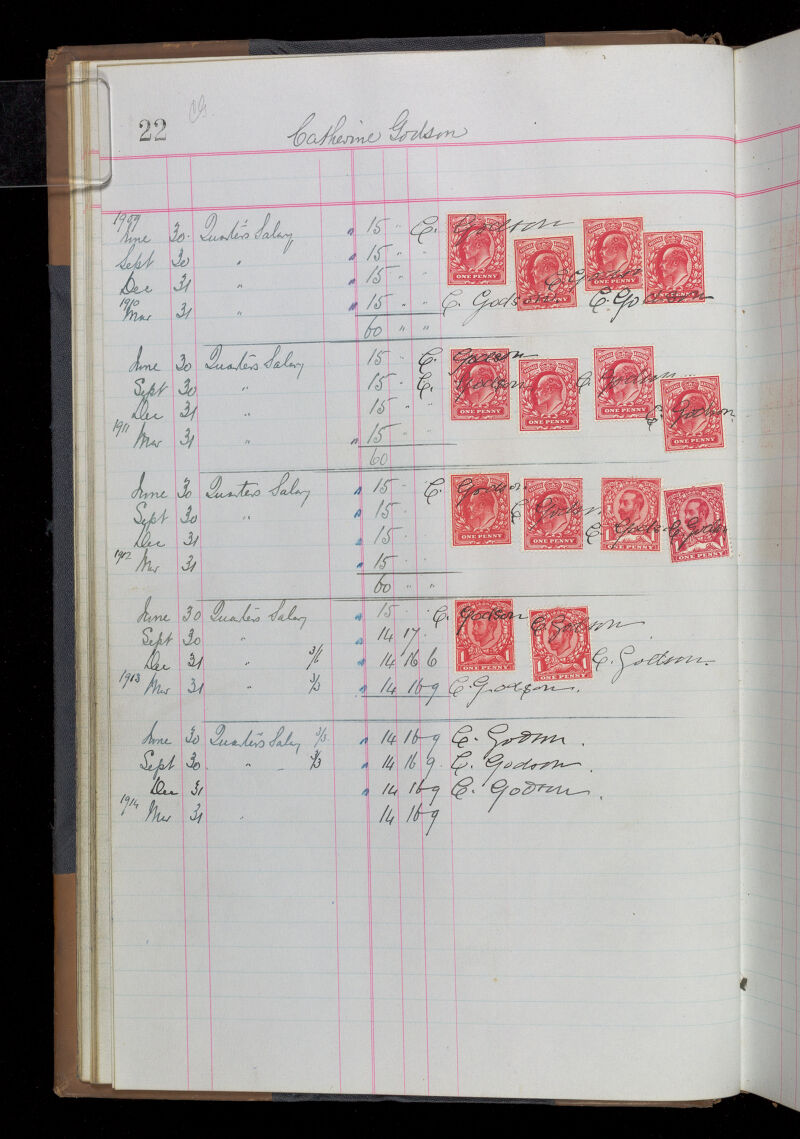 22
Catherine Godson
1909
June 30. Quarter's Salary " 15 " C. Godson
Sept 30 " " 15 " "
Dec 31 " " 15 " " C. Godson
1910
Mar 31 " " 15 " " C. Godson C. Godson
60 " "
June 30 Quarter's Salary 15 " C. Godson
Sept 30 " 15 " C. Godson C. Godson
Dec 31 15 " " C. Godson
1911
Mar 31 " " 15 " "
60
June 30 Quarters Salary " 15 " C. Godson
Sept 30 " " 15 " C. Godson
Dec 31 " 15 " C. Godson C. Godson
1912
Mar 31 " 15 " "
60 " "
June 30 Quarter's Salary " 15 " " C. Godson C. Godson
Sept 30 " " 14 17
Dec 31 " 3/6 " 14 16 6 C. Godson.
1913
Mar 31 " 3/3 " 14 16 9 C. Godson.
June 30 Quarter's Salary 3/3 " 14 16 9 C. Godson.
Sept 30 " 3/3 " 14 16 9 C. Godson
Dec 31 " 14 16 9 C. Godson.
1914
Mar 31 " 14 16 9
ONE PENNY
ONE PENNY
ONE PENNY
ONE PENNY
ONE PENNY
ONE PENNY
ONE PENNY
ONE PENNY
ONE PENNY
ONE PENNY
1 ONE PENNY 1
1 ONE PENNY 1
1 ONE PENNY 1
1 ONE PENNY 1